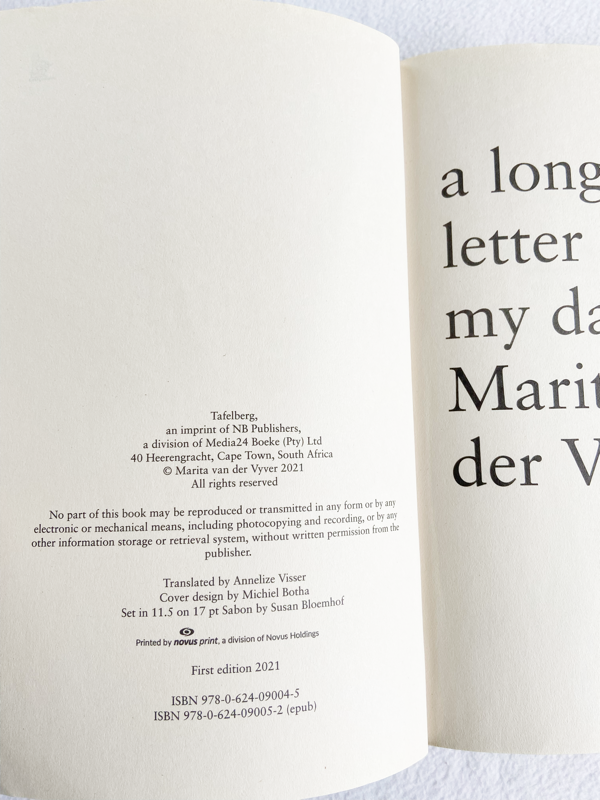 Tafelberg,
an imprint of NB Publishers,
a division of Media24 Boeke (Pty) Ltd
40 Heerengracht, Cape Town, South Africa
© Marita van der Vyver 2021
All rights reserved
No part of this book may be reproduced or transmitted in any form or by any
electronic or mechanical means, including photocopying and recording, or by any
other information storage or retrieval system, without written permission from the
publisher.
Translated by Annelize Visser
Cover design by Michiel Botha
Set in 11.5 on 17 pt Sabon by Susan Bloemhof
Printed by novus print, a division of Novus Holdings
First edition 2021
ISBN 978-0-624-09004-5
ISBN 978-0-624-09005-2 (epub)
a long
letter
my da
Marit
der V